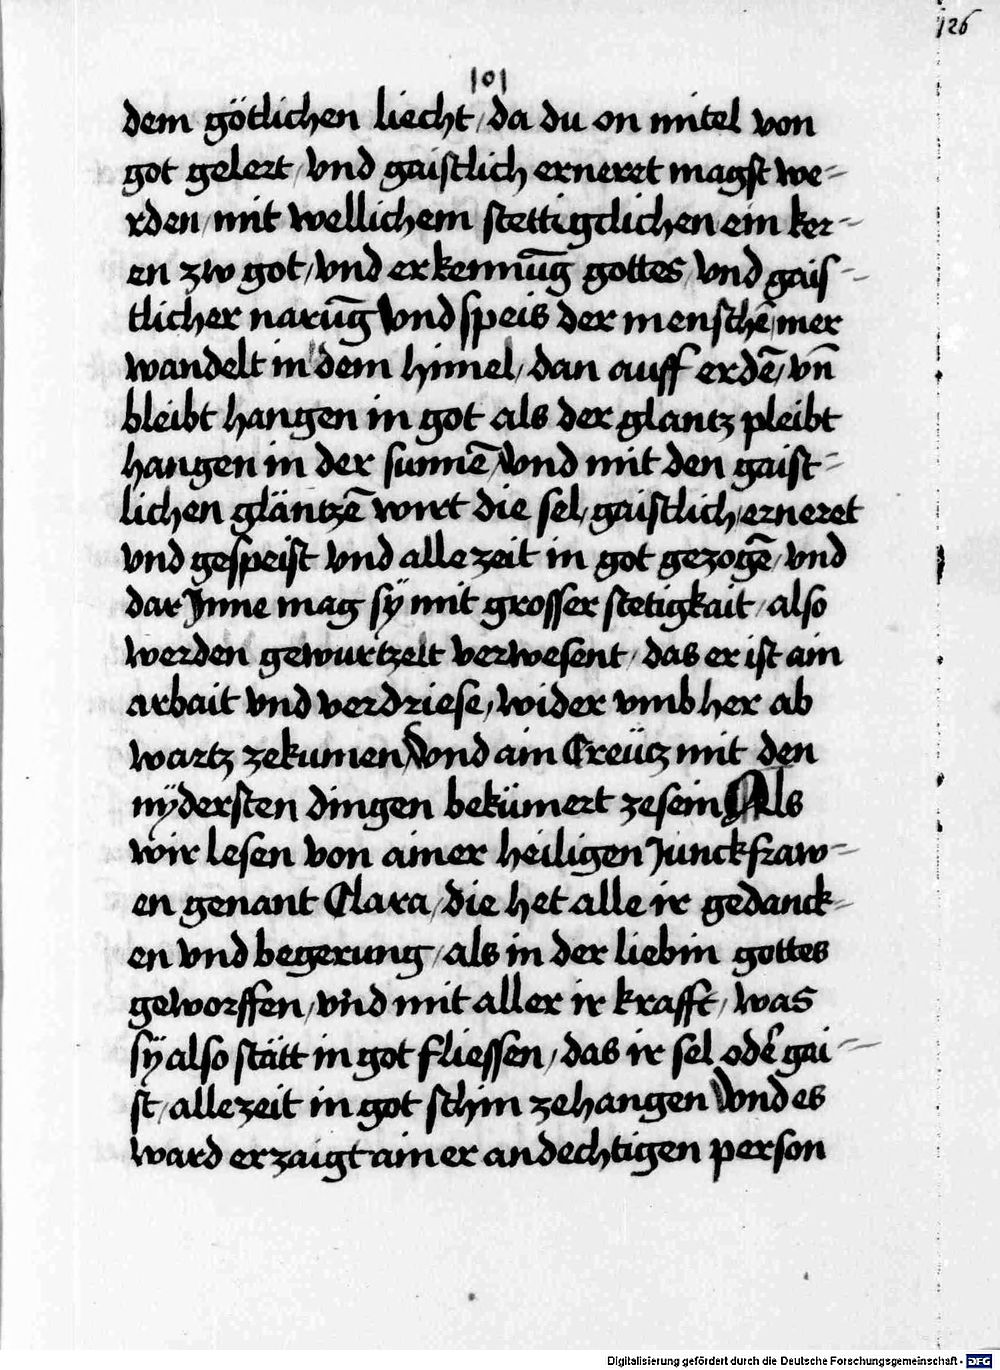 126
101
dem götlichen liecht / da du on mitel von
got gelert / vnd gaistlich erneret magst we-
rden / mit wellichem stettigclichen ein ker-
en zw got / vnd erkennūg gottes / vnd gais-
tlicher narūg Vnd speis der menschē mer
wandelt in dem himel / dan auff erdē / vn̄
bleibt hangen in got als der glantz pleibt
hangen in der sunnē Vnd mit den gaist-
lichen gläntzē wirt die sel / gaistlich / erneret
vnd gespeist vnd allezeit in got gezogē / vnd
dar Jnne mag sÿ mit grosser stetigkait / also
werden gewurtzelt verwesent / das er ist ain
arbait vnd verdriese / wider vmb her ab
wartz zekumen Vnd ain Creütz mit den
nÿdersten dingen bekümert zesein Als
wir lesen von ainer heiligen Junckfraw-
en genant Clara / die het alle ir gedanck-
en vnd begerung / als in der liebin gottes
geworffen / vnd mit aller ir krafft / was
sÿ also stätt in got fliessen / das ir sel odē gai-
st / allezeit in got schin zehangen Vnd es
ward erzaigt ainer andechtigen person
Digitalisierung gefördert durch die Deutsche Forschungsgemeinschaft - DFG